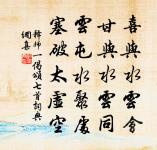 喜與水雲會
甘與水雲同
雲屯水聚處
塞破太虛空
釋師一偈頌七首詞典
網喜